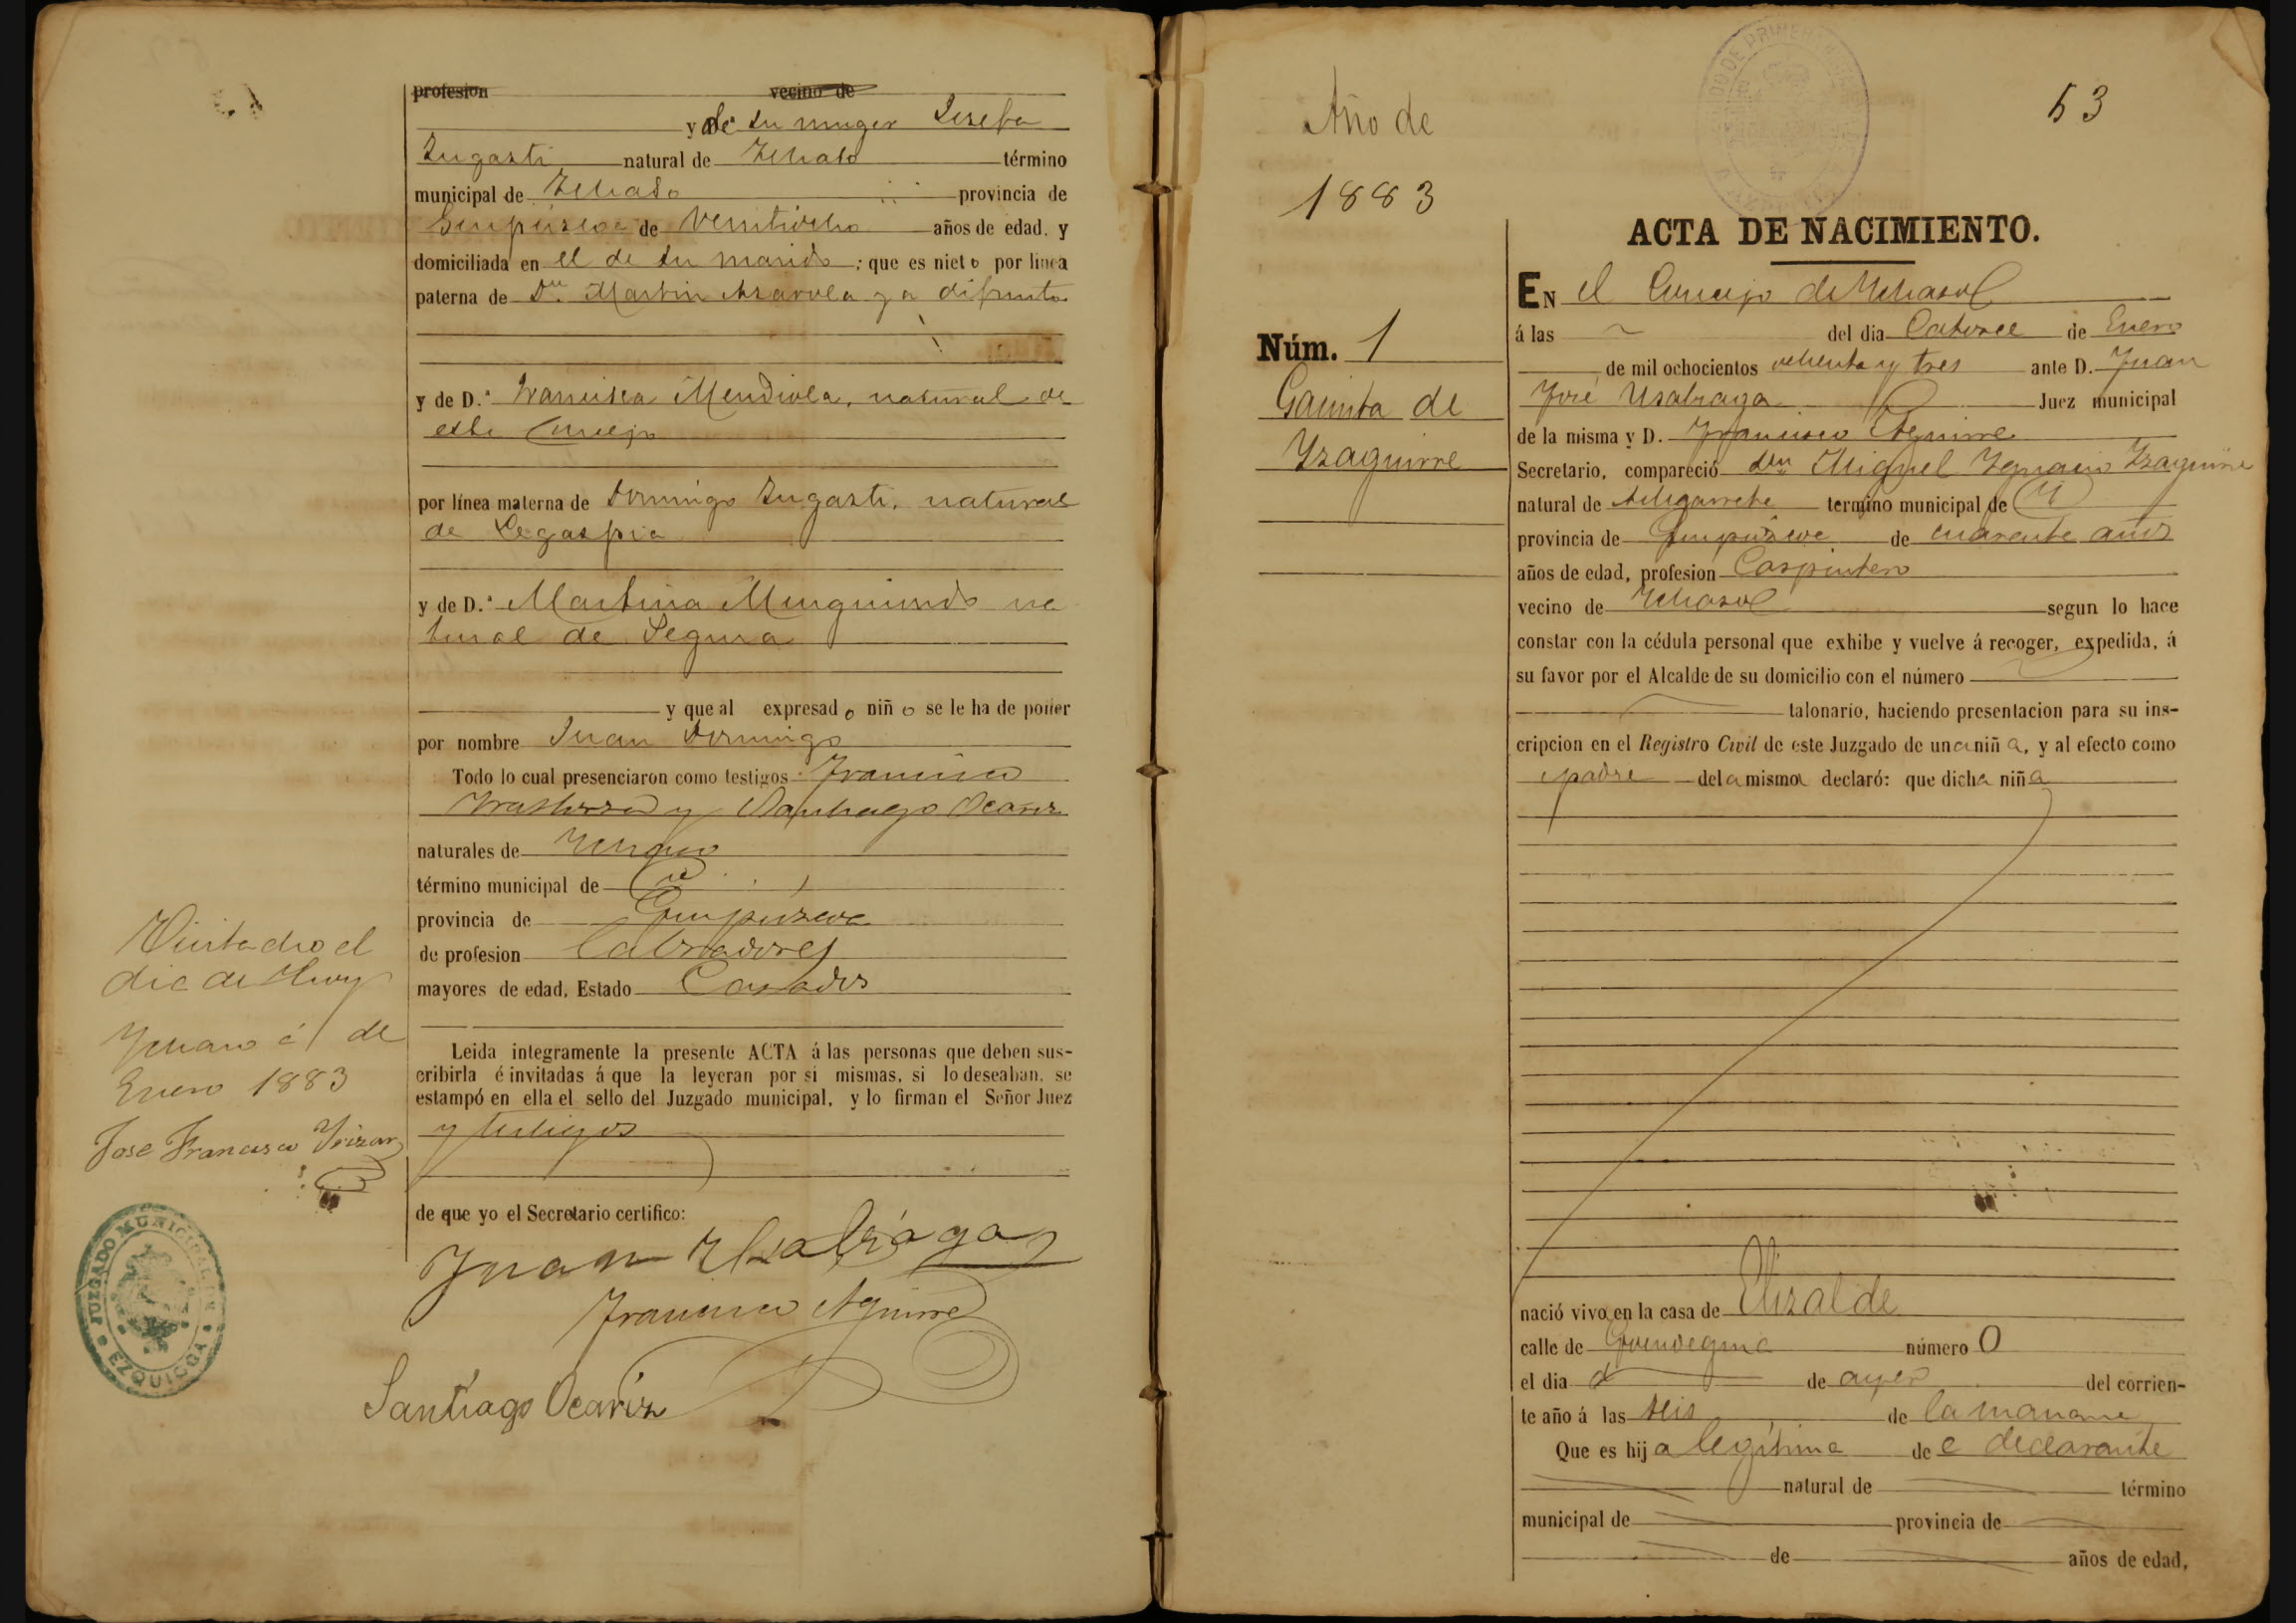 profesion vecino de
y de su muger Josefa
Zugasti natural de Ichaso término
municipal de Ichaso provincia de
Guipúzcoa de Veintiocho años de edad. y
domiciliada en el de su marido ; que es nieto por linea
paterna de Dn Martin ya difunto
y de D.ª Francisca Mendiola, natural de
este Concejo
por línea materna de Domingo Zugasti, natural
de Legazpia
y de D.ª Martina na
tural de Segura
y que al expresado niño se le ha de poner
por nombre Juan Domingo
Todo lo cual presenciaron como testigos Francisco
y Santiago Ocariz
naturales de Ichaso
término municipal de
provincia de Guipúzcoa
de profesion labradores
mayores de edad, Estado Casados
Leida integramente la presente ACTA á las personas que deben sus-
cribirla é invitadas á que la leyeran por si mismas, si lo deseaban, se
estampó en ella el sello del Juzgado municipal, y lo firman el Señor Juez
y testigos
de que yo el Secretario certifico:
Juan Usabiaga
Francisco Aguirre
Santiago Ocariz
el
dia de Hoy
Ichaso á 1 de
Enero 1883
Jose Francisco Yrizar
JUZGADO MUNICIPAL DE
EZQUIOGA
53
Año de
1883
Núm. 1
Jacinta de
Yzaguirre
ACTA DE NACIMIENTO.
EN el Concejo de Ychaso
á las del dia Catorce de Enero
de mil ochocientos ochenta y tres ante D. Juan
José Usabiaga Juez municipal
de la misma y D. Francisco Aguirre
Secretario, compareció don Miguel Ygnacio Yzaguirre
natural de Astigarreta termino municipal de
provincia de Guipúzcoa de cuarenta años
años de edad, profesion Carpintero
vecino de Ichaso segun lo hace
constar con la cédula personal que exhibe y vuelve á recoger, expedida, á
su favor por el Alcalde de su domicilio con el número
talonario, haciendo presentacion para su ins-
cripcion en el Registro Civil de este Juzgado de una niña, y al efecto como
padre de la misma declaró: que dicha niña
nació vivo en la casa de Elizalde
calle de número 0
el dia de ayer del corrien-
te año á las seis de la manana
Que es hija legítima de e declarante
natural de término
municipal de provincia de
de años de edad,